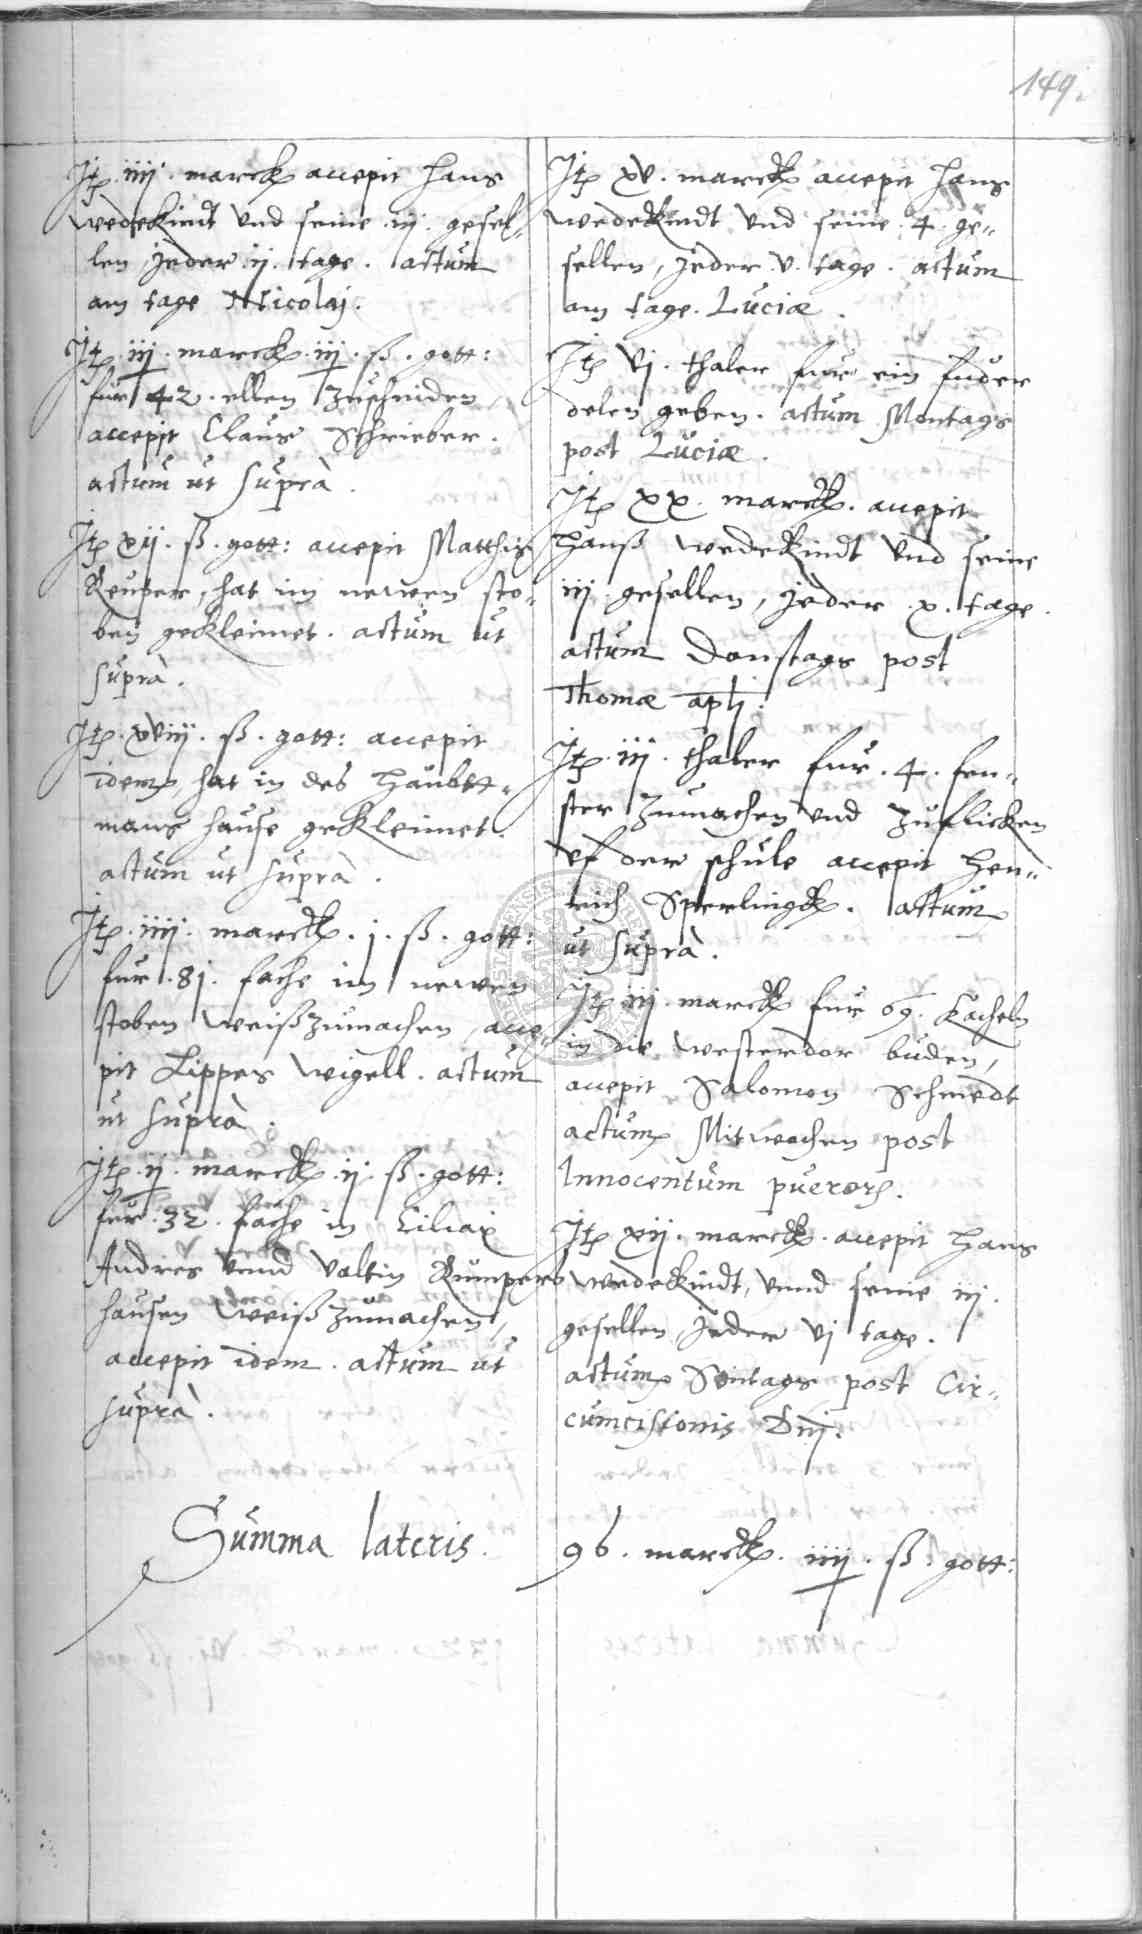 149.
Itē. iiij. marck accepit Hans
wedekindt vnd seine .iij. gesel-
len jeder .ij. tage. actum
am tage Nicolaj.
Itē. iij. marck. iij. ß. gott:
fur 42. ellen zuschniden
accepit Claus Schrieber.
actum ut suprà.
Itē xij. ß. gott: accepit Matthis
Reuber, hat im newen sto-
ben gekleimet. actum ut
suprà.
Itē. xviij. ß. gott: accepit
idem hat in des Haubtt-
mans hause gekleimet.
actum ut suprà.
Itē. iiij. marck. j. ß. gott:
fur .81. fache im newen
stoben weiß zumachen, acce-
pit Lippes Wigell. actum
ut suprà.
Itē. ij. marck. ij. ß. gott:
fur .32. fache in Ciliax
Andres vnnd Valtin Rumpers
hausen weiß zumachen,
accepit idem. actum ut
suprà.
Itē xv. marck accepit Hans
wedekindt vnd seine .4. ge-
sellen, jeder .v. tage. actum
am tage. Luciæ.
Itē vj. thaler fur ein fuder
delen geben. actum Montags
post Luciæ.
Itē xx. marck. accepit
Hanß wedekindt vnd seine
iij. gesellen, jeder .x. tage.
actum Donstags post
Thomæ apli.
Itē. iij. thaler fur .4. fen-
ster zumachen vnd zuflicken
vf der schule accepit Hen-
rich Sperlingk. actum
ut suprà.
Itē iij. marck fur 69. Kacheln
in die westerdor buden,
accepit Salomon Schmedt
actum Mitwochen post
Innocentum puerorū.
Itē xij. marck. accepit Hans
wedekindt, vnnd seine iij.
gesellen jeder vj tage.
actum Sontags post Cir-
cumcisionis Dnj.
Summa lateris. 96. marck. iiij. ß. gott: